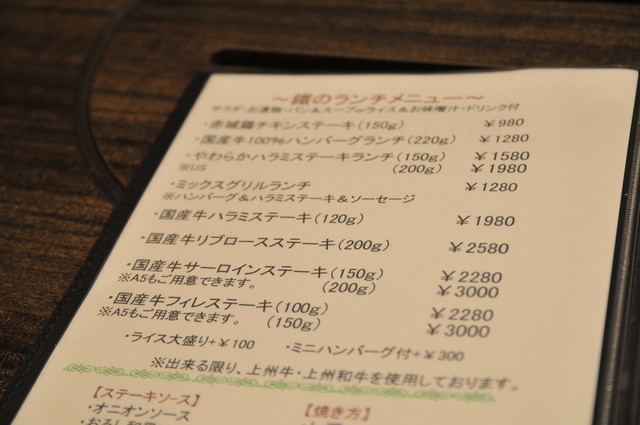 ～鐵のランチメニュー～
サラダ・お漬物・パン&スープorライス&お味噌汁・ドリンク付
・赤城鶏チキンステーキ(150g) ￥980
・国産牛100%ハンバーグランチ(220g) ￥1280
・やわらかハラミステーキランチ(150g) ￥1580
※US (200g) ￥1980
・ミックスグリルランチ ￥1280
※ハンバーグ&ハラミステーキ&ソーセージ
・国産牛ハラミステーキ(120g) ￥1980
・国産牛リブロースステーキ(200g) ￥2580
・国産牛サーロインステーキ(150g) ￥2280
※A5もご用意できます。 (200g) ￥3000
・国産牛フィレステーキ(100g) ￥2280
※A5もご用意できます。 (150g) ￥3000
・ライス大盛り+￥100 ・ミニハンバーグ付+￥300
※出来る限り、上州牛・上州和牛を使用しております。
【ステーキソース】 【焼き方】
・オニオンソース
・おろし和風